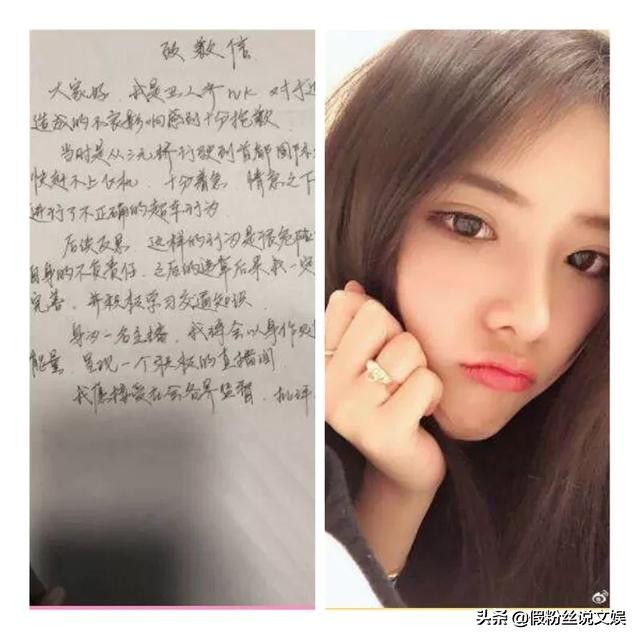 致歉信
大家好,我是 对于
造成的不良影响感到十分抱歉
当时是从三元桥行驶到首都国际
快赶不上飞机.十分着急 情急之下
进行了不正确的超车行为
后续反思 这样的行为是很危险
自身的不负责任.之后的违章后果我一定
完善,并积极学习交通知识.
身为一名主播,我将会以身作则
能量,呈现一个积极的直播间
我愿接受社会各界监督,批评
头条 @假粉丝说文娱